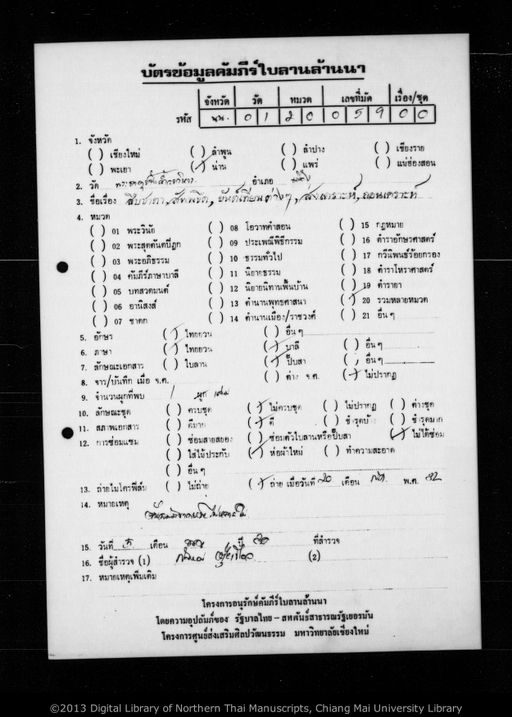 บัตรข้อมูลคัมภีร์ใบลานล้านนา
จังหวัด วัด หมวด เลขที่มัด เรื่อง/ชุด
รหัส นน. 0 1 2 0 0 5 9 0 0
1. จังหวัด
( ) เชียงใหม่ ( ) ลำพูน ( ) ลำปาง ( ) เชียงราย
( ) พะเยา (/) น่าน ( ) แพร่ ( ) แม่ฮ่องสอน
2. วัด อำเภอ เมือง
3. ชื่อเรื่อง สืบชาตา,
4. หมวด
( ) 01 พระวินัย ( ) 08 โอวาทคำสอน ( ) 15 กฎหมาย
( ) 02 พระสุตตันตปิฎก ( ) 09 ประเพณีพิธีกรรม ( ) 16 ตำราอักษรศาสตร์
( ) 03 พระอภิธรรม ( ) 10 ธรรมทั่วไป ( ) 17 กวีนิพนธ์ร้อยกรอง
( ) 04 คัมภีร์ภาษาบาลี ( ) 11 นิยายธรรม ( ) 18 ตำราโหราศาสตร์
( ) 05 บทสวดมนต์ ( ) 12 นิยายนิทานพื้นบ้าน ( ) 19 ตำรายา
( ) 06 อานิสงส์ ( ) 13 ตำนานพุทธศาสนา (/) 20 รวมหลายหมวด
( ) 07 ชาดก ( ) 14 ตำนานเมือง/ราชวงศ์ ( ) 21 อื่น ๆ
5. อักษร (/) ไทยยวน ( ) อื่น ๆ
6. ภาษา (/) ไทยยวน (/) บาลี ( ) อื่น ๆ
7. ลักษณะเอกสาร ( ) ใบลาน (/) ปั๊บสา ( ) อื่น ๆ
8. จาร/บันทึก เมื่อ จ.ศ. ( ) ค่าง จ.ศ. (/) ไม่ปรากฏ
9. จำนวนผูกที่พบ 1 ผูก
10. ลักษณะชุด ( ) ครบชุด (/) ไม่ครบชุด ( ) ไม่ปรากฏ ( ) ต่างชุด
11. สภาพเอกสาร ( ) ดีมาก (/) ดี ( ) ชำรุด ( ) ชำรุดมาก
12. การซ่อมแซม ( ) ซ่อมสายสยอง ( ) ซ่อมตัวใบลานหรือปั๊บสา (/) ไม่ได้ซ่อม
( ) ใส่ไม้ประกับ (/) ห่อผ้าใหม่ ( ) ทำความสะอาด
( ) อื่น ๆ
13. ถ่ายไมโครฟิล์ม ( ) ไม่ถ่าย (/) ถ่าย เมื่อวันที่ 20 เดือน พ.ศ. 32
14. หมายเหตุ
15. วันที่ 5 เดือน ปี 30 ที่สำรวจ
16. ชื่อผู้สำรวจ (1) (2)
17. หมายเหตุเพิ่มเติม
โครงการอนุรักษ์คัมภีร์ใบลานล้านนา
โดยความอุปถัมภ์ของ รัฐบาลไทย - สหพันธ์สาธารณรัฐเยอรมัน
โครงการศูนย์ส่งเสริมศิลปวัฒนธรรม มหาวิทยาลัยเชียงใหม่
©2013 Digital Library of Northern Thai Manuscripts, Chiang Mai University Library